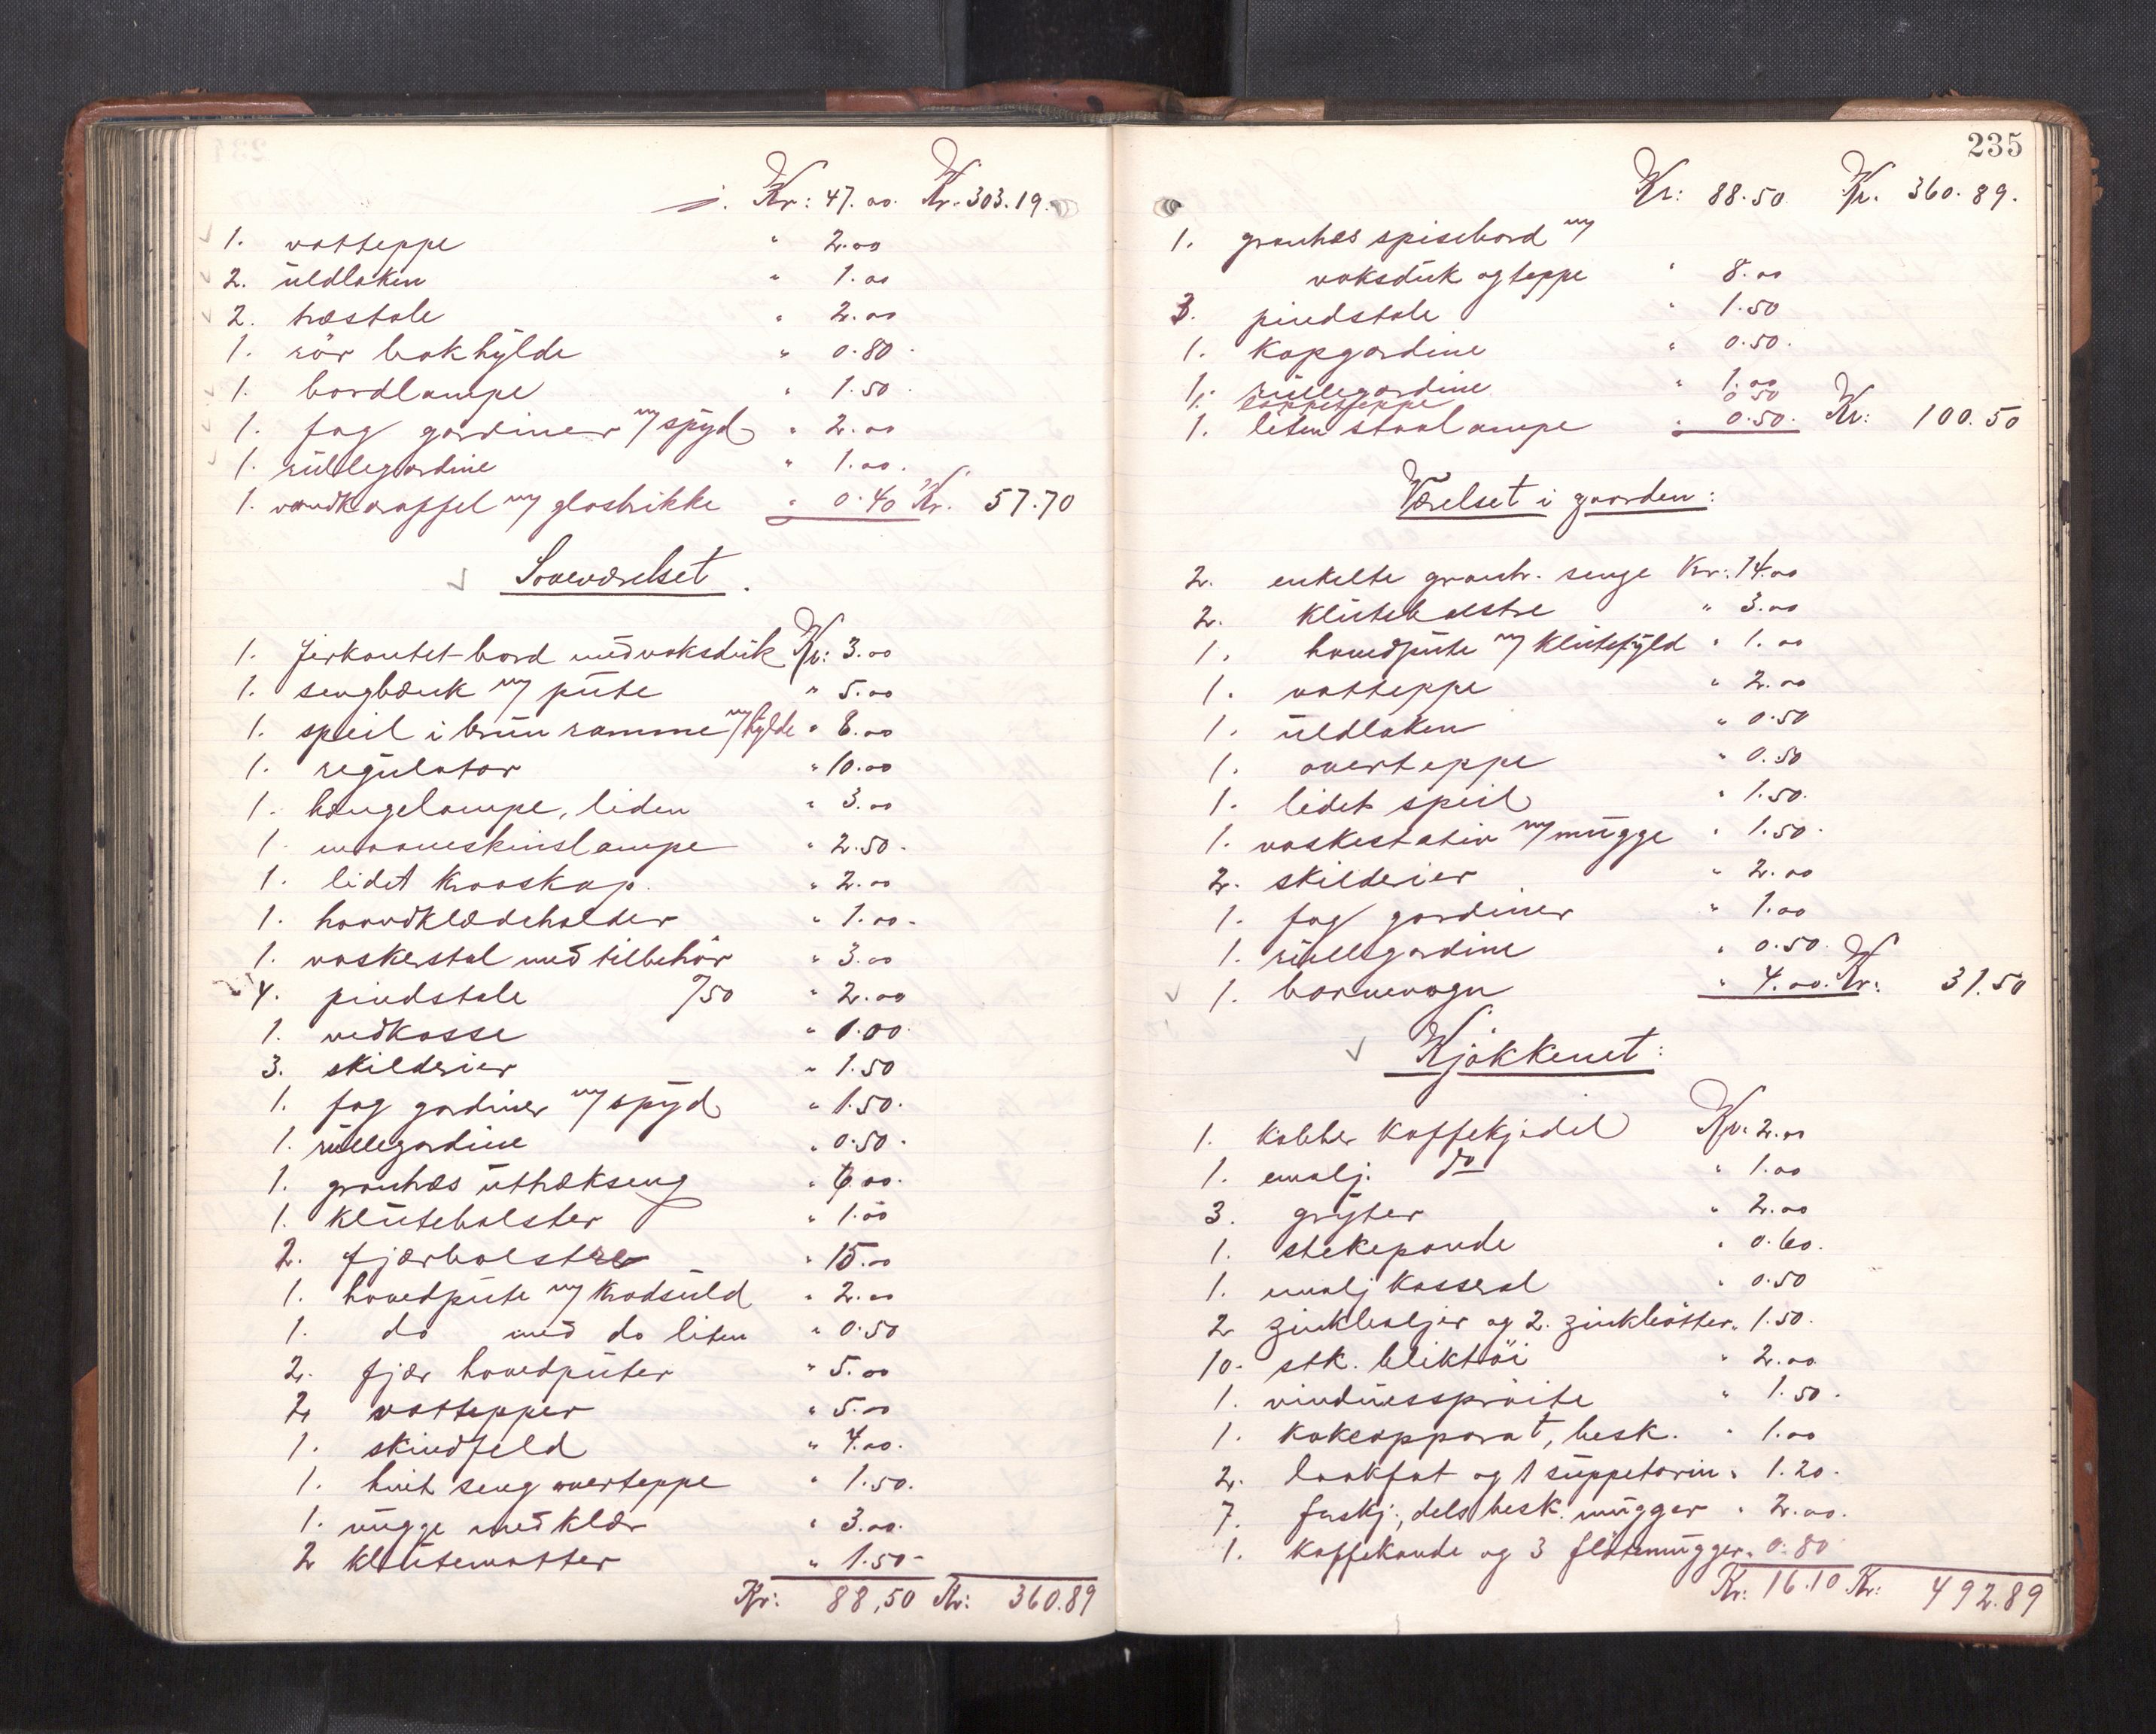 Kr: 47.00. Kr. 303.19.
1. vatteppe " 2.00
2. uldlaken " 1.00
2. træstole " 2.00
1. rör bokhylde " 0.80.
1. bordlampe " 1.50.
1. fag gardiner m/ spyd " 2.00
1. rullegardine " 1.00.
1. vandkaraffel m/ glastrikke " 0.40 Kr. 57.70
Soveværelset.
1. firkantet bord med voksduk Kr: 3.00
1. sengbænk m/ pute " 5.00
1. speil i brun ramme m/hylde " 8.00
1. regulator " 10.00
1. hængelampe, liden " 3.00
1. maaneskinslampe " 2.50.
1. lidet kroskap. " 2.00
1. haandklædeholder " 1.00.
1. vaskerstol med tilbehör " 3.00
4. pindstole /50 " 2.00
1. vedkasse " 1.00.
3. skilderier " 1.50
1. fag gardiner m/ spyd " 1.50.
1. rullegardine " 0.50.
1. granhæs uttrækseng " 6.00.
1. klutebolster " 1.00
2. fjærbolstre " 15.00
1. hovedpute m/ krøduld " 2.00
1. do med do liten " 0.50
2. fjær hovedputer " 5.00
2 vattepper " 5.00
1. skindfeld " 4.00.
1. hvit seng overteppe " 1.50.
1. vugge med klær " 3.00.
2 klutematter " 1.50-
Kr: 88,50 Kr: 360.89
235
Kr: 88.50. Kr. 360.89.
1. granhæs spisebord m/
voksduk og teppe " 8.00
3. pindstole " 1.50
1. kapgardine " 0.50.
1. rullegardine " 1.00
1. 0.50
1. liten staalampe " 0.50. Kr: 100.50
Værelset i gaarden:
2. enkelte grantr. senge Kr: 14.00
2. klutebolstre " 3.00
1. hovedpute m/ klutefyld " 1.00
1. vatteppe " 2.00
1. uldlaken " 0.50
1. overteppe " 0.50
1. lidet speil " 1.50.
1. vaskestativ m/ mugge " 1.50.
2. skilderier " 2.00
1. fag gardiner " 1.00
1. rullegardine " 0.50.
1. barnevogn " 4.00. Kr: 31.50
Kjøkkenet:
1. kobber kaffekjedel Kr. 2.00
1. emalj. do " 1.00
3. gryter " 2.00
1. stekepande " 0.60.
1. emalj kasserol " 0.50
2 zinkbaljer og 2. zinkbøtter " 1.50.
10. stk. bliktöi " 2.00
1. vinduessprøite " 1.50.
1. kokeapparat, besk. " 1.00
2. laakfat og 1 suppeterin " 1.20.
7. forskj., dels besk. mugger " 2.00.
1. kaffekande og 3 fløtemugger " 0.80
Kr: 16.10 Kr: 492.89